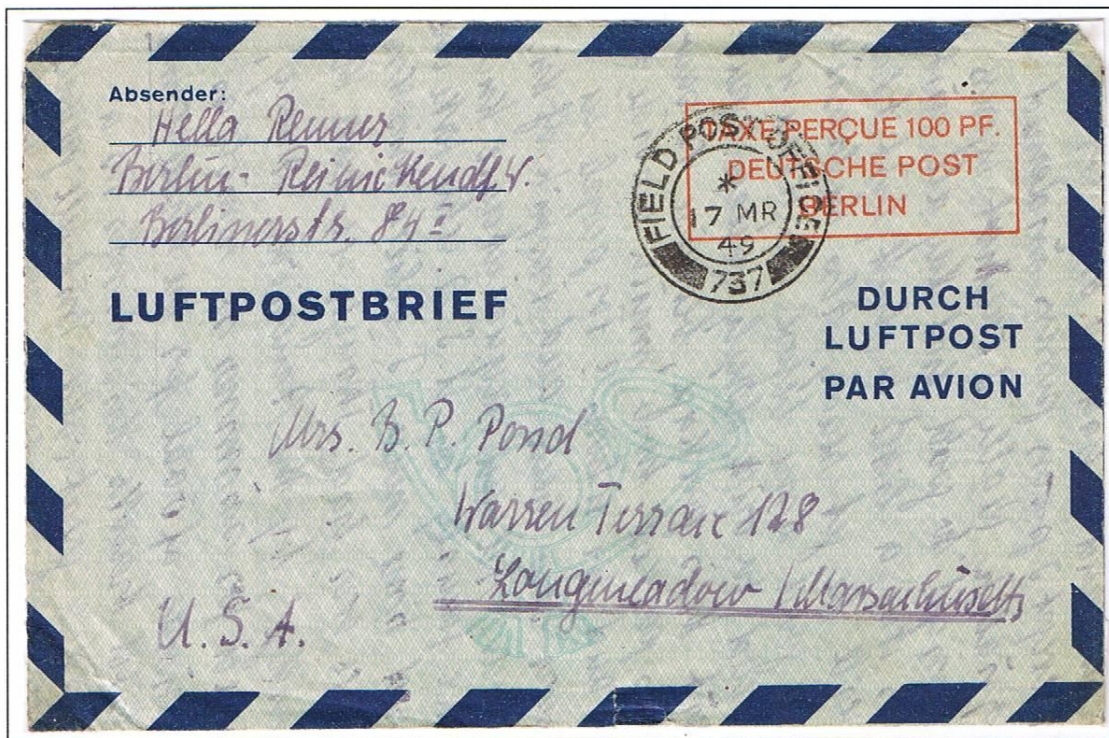 Absender:
Hella Renner
Berlin-Reinickendf W.
Berlinerstr. 84 II
TAXE PERÇUE 100 PF.
DEUTSCHE POST
BERLIN
FIELD POST OFFICE
*
17 MR
49
737
LUFTPOSTBRIEF
DURCH
LUFTPOST
PAR AVION
Mrs. B. P. Pond
Warren Terrace 128
Longmeadow / Massachusetts
U. S. A.